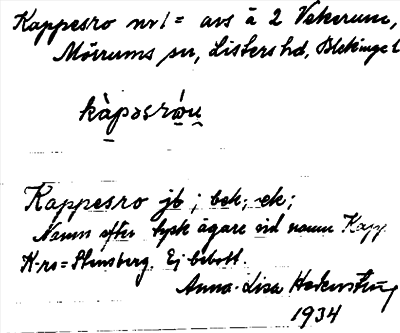 Kappesro nr 1 = avs å 2 Vekerum,
Mörrums sn, Listers hd, Blekinge l
kàpəsrów
Kappesro jb; bek; ek;
Namn efter tysk ägare vid namn Kapp.
K-ro = Stensberg. Ej bebott.
Anna-Lisa
1934